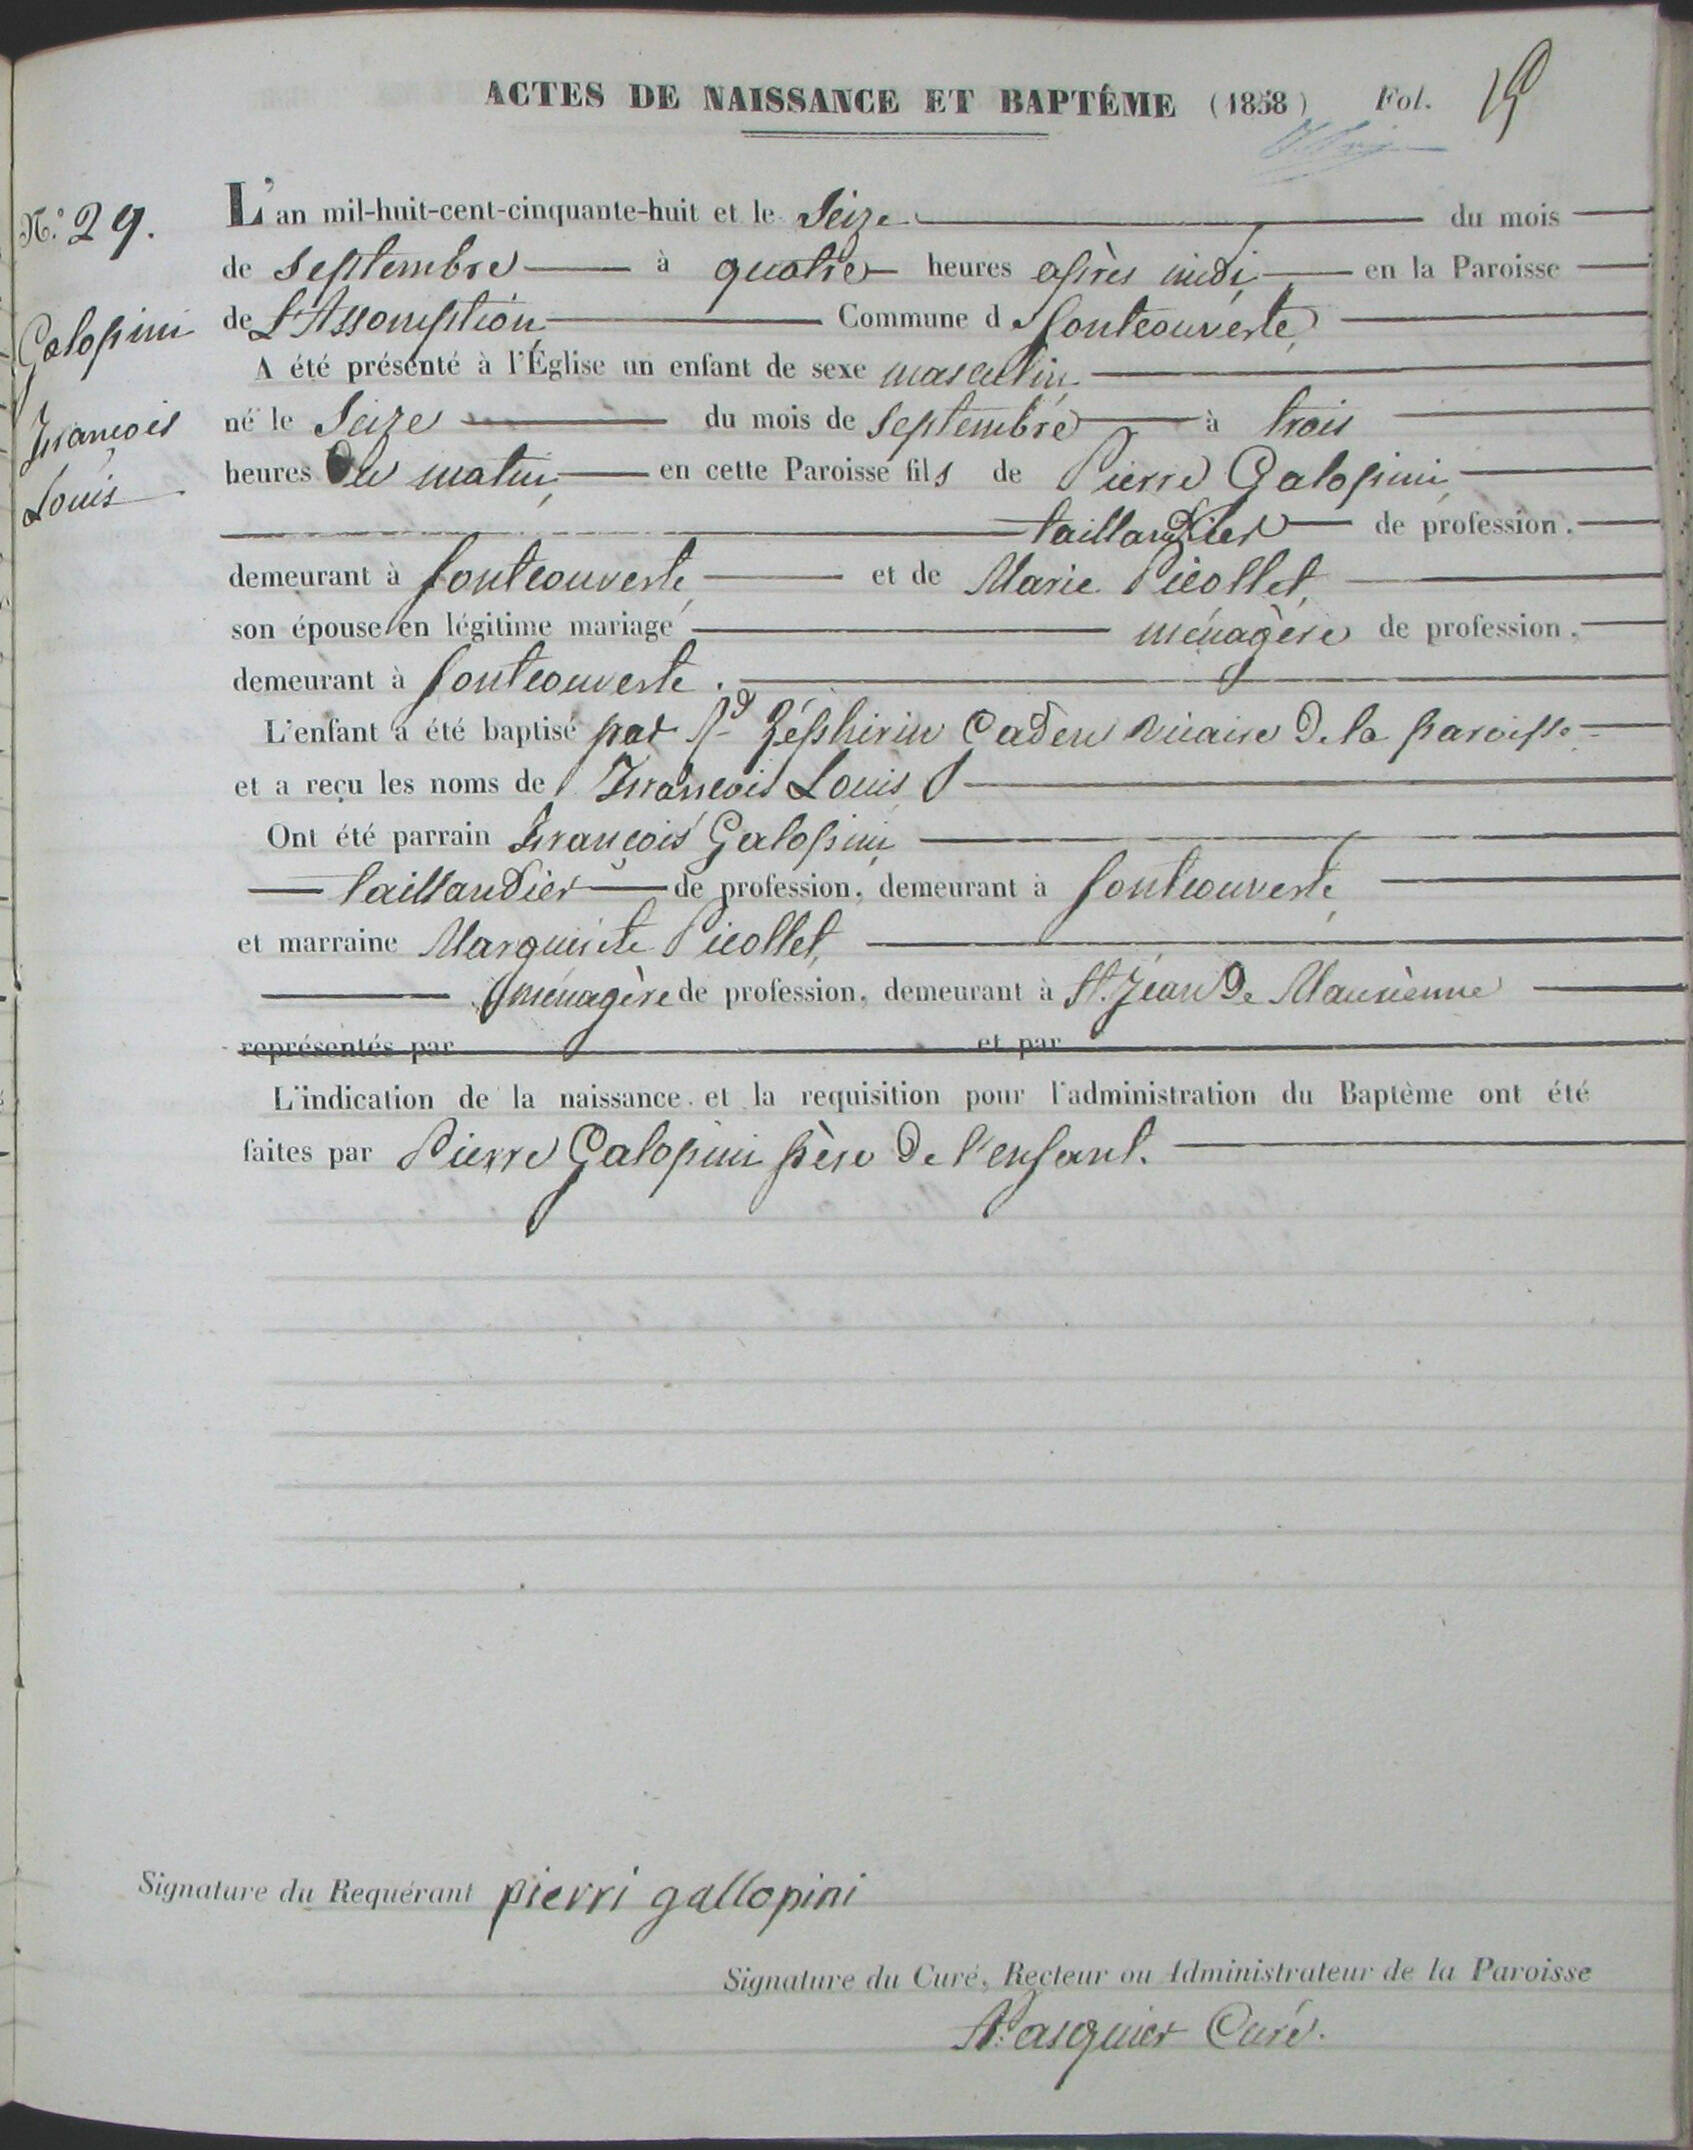 ACTES DE NAISSANCE ET BAPTÊME (1858) Fol. 15
N.° 29.
L'an mil-huit-cent-cinquante-huit et le Seize du mois
de Septembre à quatre heures après midi en la Paroisse
Galopini
de L'Assomption Commune d fontcouverte,
A été présenté à l'Église un enfant de sexe masculin
François
né le Seize du mois de Septembre à trois
Louis
heures du matin, en cette Paroisse fils de Pierre Galopini,
taillandier de profession.
demeurant à fontcouverte, et de Marie Picollet,
son épouse en légitime mariage ménagère de profession,
demeurant à fontcouverte.
L'enfant a été baptisé par Rd Zéphirin Caden vicaire de la paroisse
et a reçu les noms de François Louis
Ont été parrain François Galopini,
taillandier de profession, demeurant à fontcouverte,
et marraine Marguerite Picollet,
ménagère de profession, demeurant à St. Jean de Maurienne
représentés par et par
L'indication de la naissance et la requisition pour l'administration du Baptême ont été
faites par Pierre Galopini père de l'enfant.
Signature du Requérant pierri gallopini
Signature du Curé, Recteur ou Administrateur de la Paroisse
Pasquier Curé.